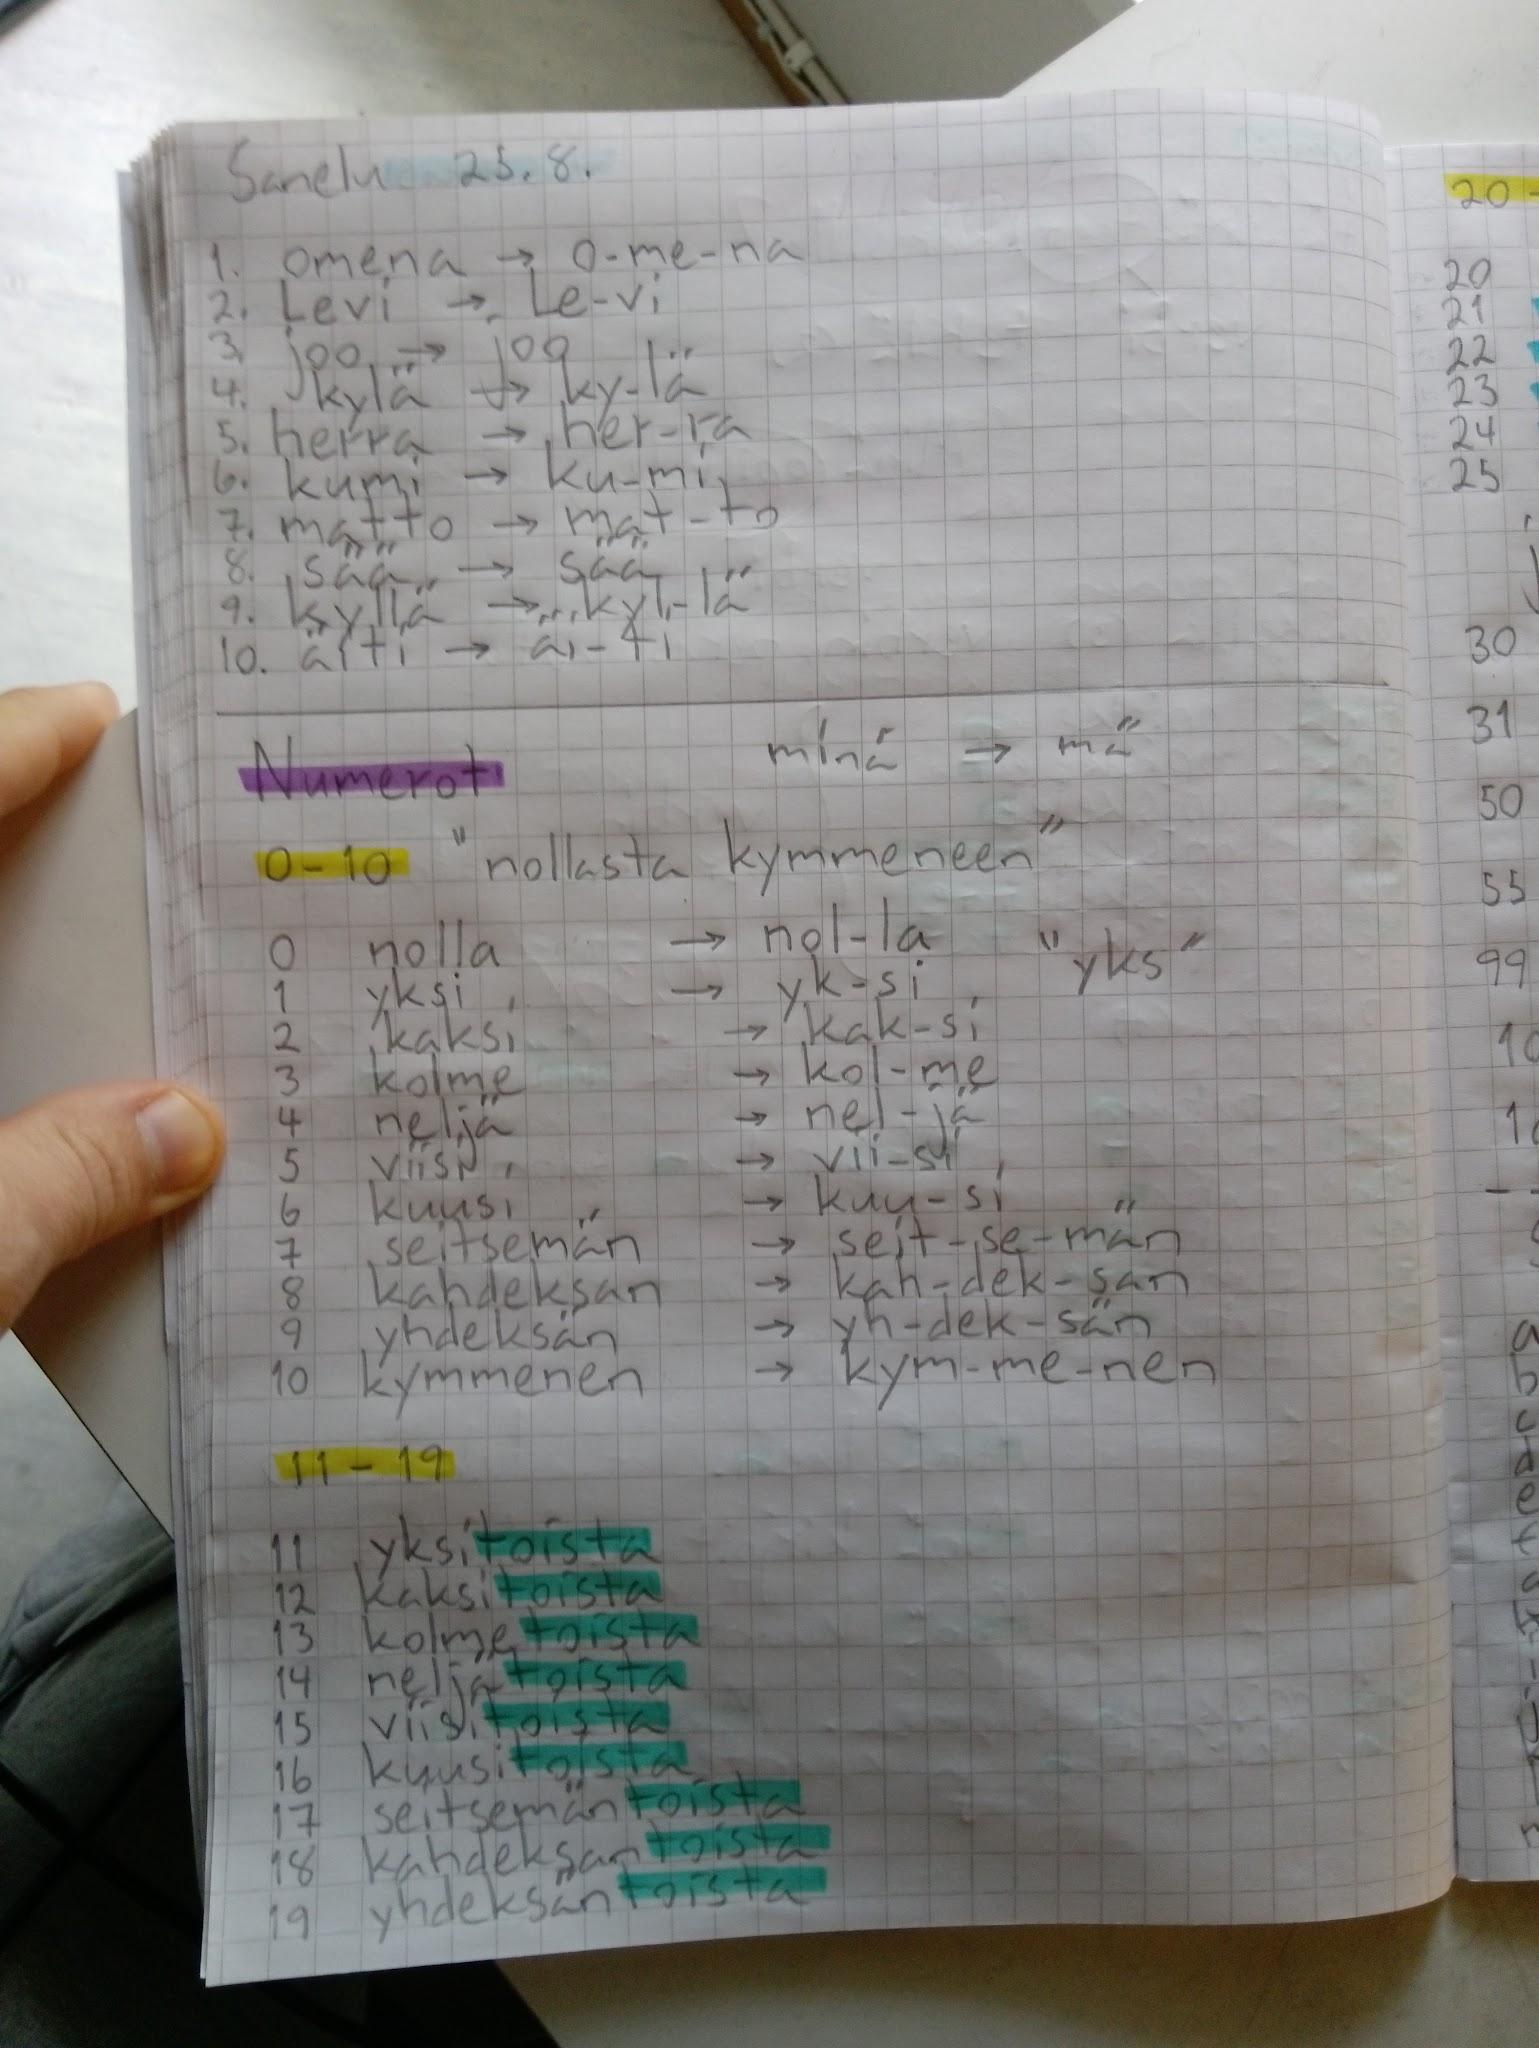 Sanelu 25.8.
1. omena → o-me-na
2. Levi → Le-vi
3. joo → joo
4. kylä → ky-lä
5. herra → her-ra
6. kumi → ku-mi
7. matto → mat-to
8. sää → sää
9. kyllä → kyl-lä
10. äiti → äi-ti
Numerot minä → mä
0-10 "nollasta kymmeneen"
0 nolla → nol-la "yks"
1 yksi → yk-si
2 kaksi → kak-si
3 kolme → kol-me
4 neljä → nel-jä
5 viisi → vii-si
6 kuusi → kuu-si
7 seitsemän → seit-se-män
8 kahdeksan → kah-dek-san
9 yhdeksän → yh-dek-sän
10 kymmenen → kym-me-nen
11-19
11 yksitoista
12 kaksitoista
13 kolmetoista
14 neljätoista
15 viisitoista
16 kuusitoista
17 seitsemäntoista
18 kahdeksantoista
19 yhdeksäntoista
20-
20
21
22
23
24
25
30
31
50
55
99